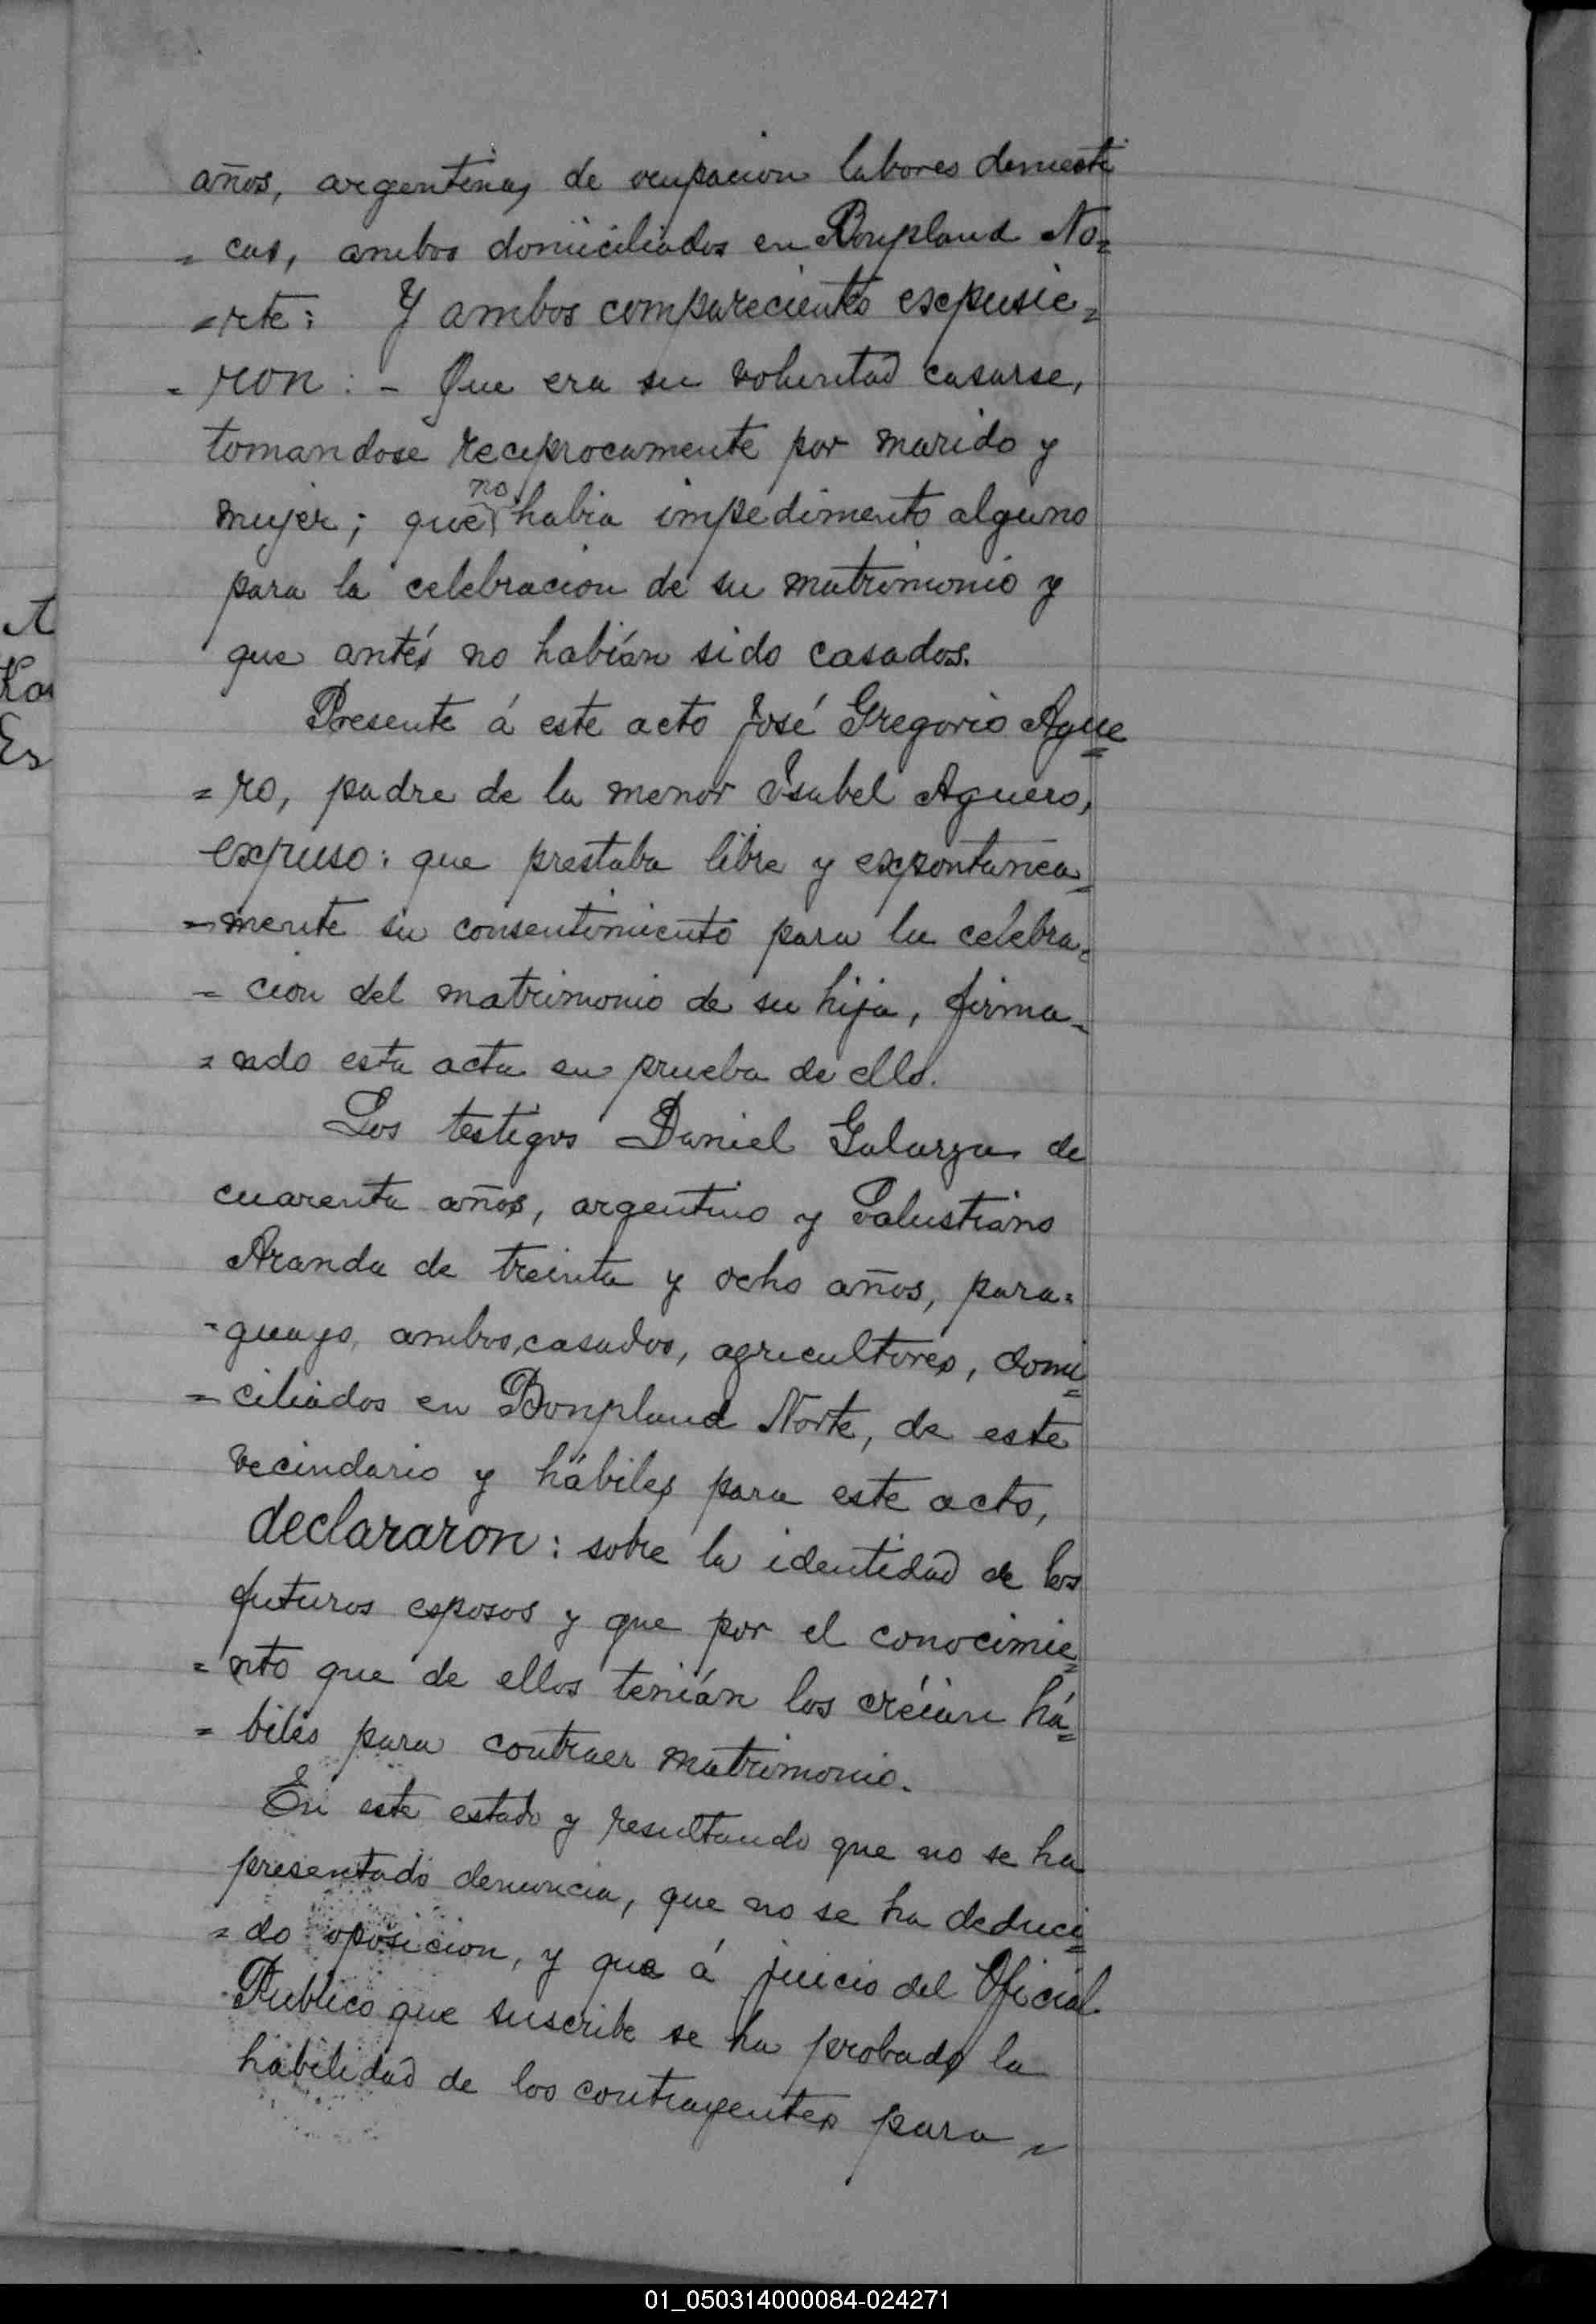 años, argentina, de ocupacion labores domesti
= cas, ambos domiciliados en Bonpland No=
=rte: Y ambos comparecientes expusie=
= ron: - Que era su voluntad casarse,
tomandose reciprocamente por marido y
mujer; que no habia impedimento alguno
para la celebracion de su matrimonio y
que antés no habían sido casados.
Presente á este acto José Gregorio Ague
= ro, padre de la menor Isabel Aguero,
expuso: que prestaba libre y expontanea=
=mente su consentimiento para la celebra=
= cion del matrimonio de su hija, firma-
= ndo esta acta en prueba de ello.
Los testigos Daniel Galarza de
cuarenta años, argentino y Salustiano
Aranda de treinta y ocho años, para=
-guayo, ambos, casados, agricultores, domi
= ciliados en Bonpland Norte, de este
vecindario y hábiles para este acto,
declararon: sobre la identidad de los
futuros esposos y que por el conocimie
= nto que de ellos tenían los créian há
= biles para contraer matrimonio.
En este estado y resultando que no se ha
presentado denuncia, que no se ha deduci
= do oposicion, y que á juicio del Oficial
Publico que suscribe se ha probado la
habilidad de los contrayentes para =
A
Ka
Es
01_050314000084-024271